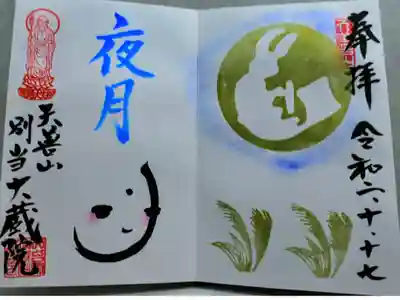 奉拝
令和二・十・十七
夜月
天善山
別当大蔵院